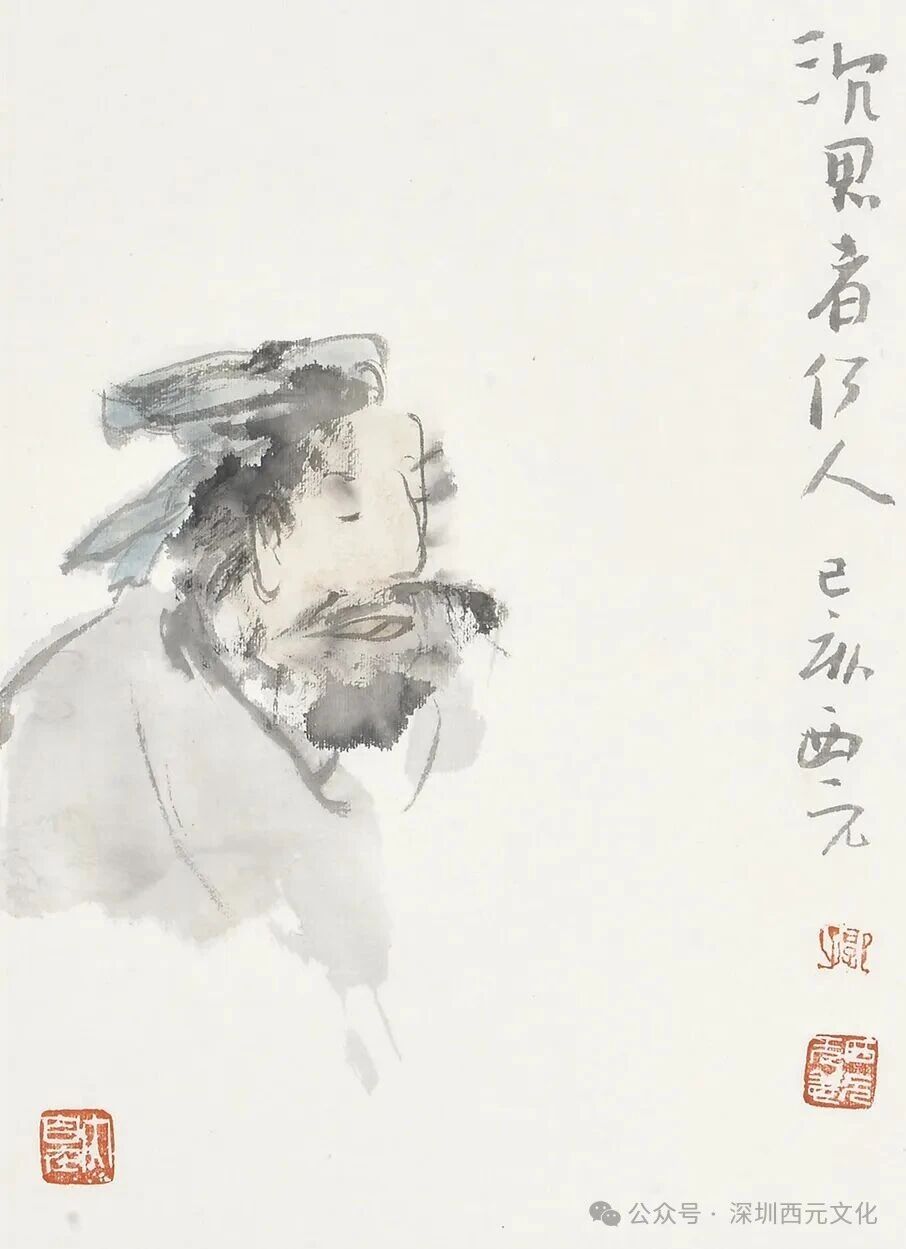 沉思者何人 己亥 西元
公众号 · 深圳西元文化